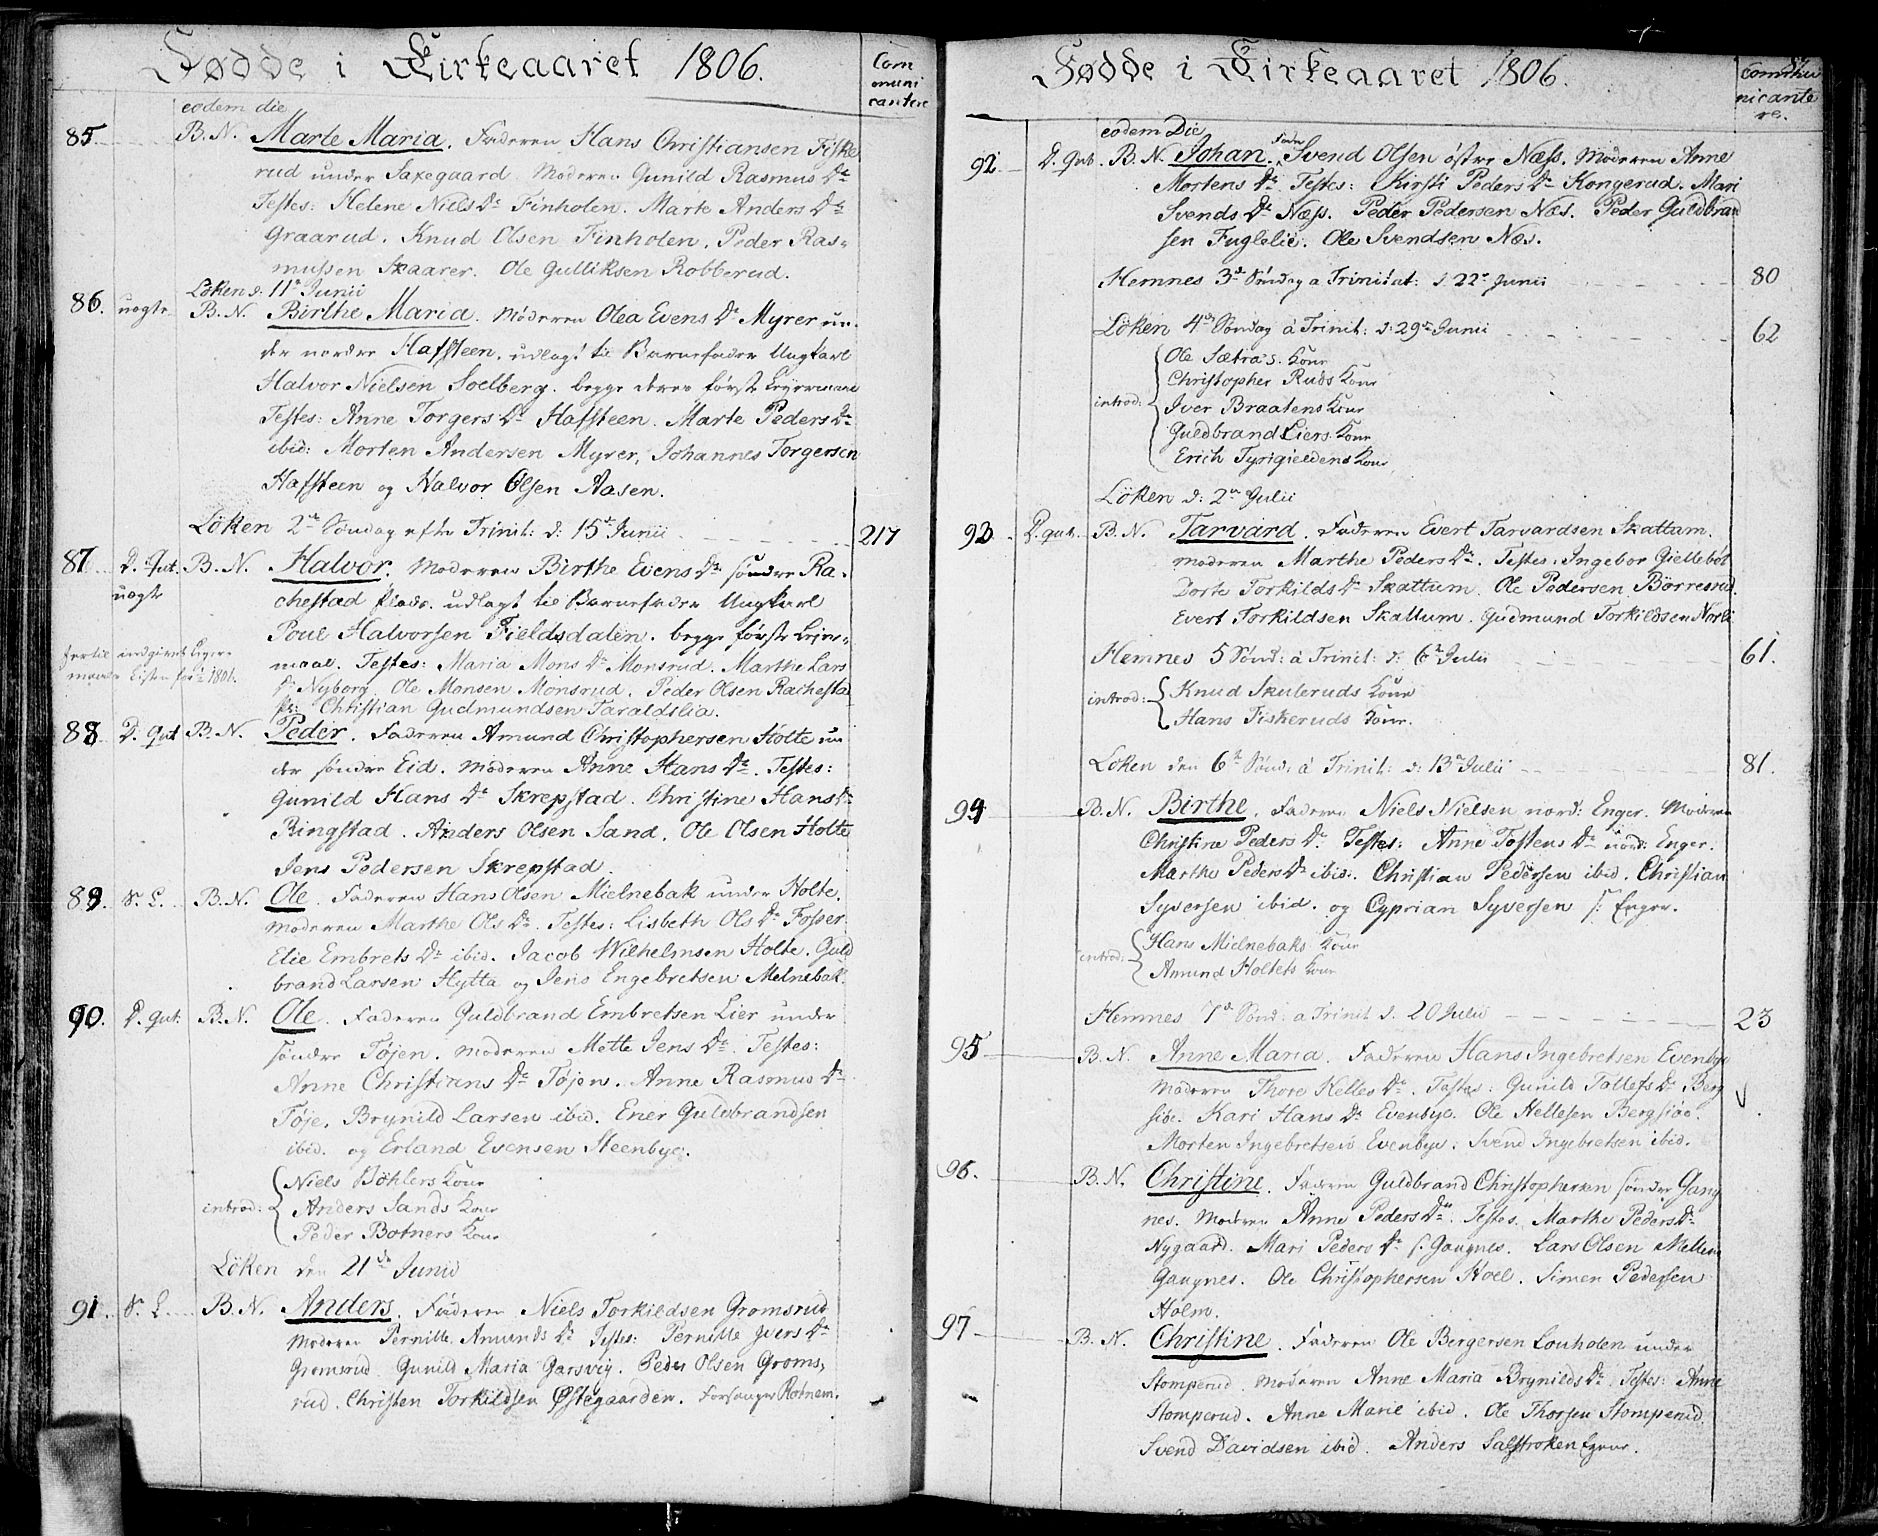 Fødde i Kirkeaaret 1806.
Com
muni
cantere
eodem die
85. B. N. Marte Maria. Faderen Hans Christiansen Fiske
rud under Saxegaard. Moderen Gunild Rasmus Dr
Testes: Helene Niels Dr Finholen. Marte Anders Dr
Graarud. Knud Olsen Finholen. Peder Ras-
mussen Skaarer. Ole Gulliksen Robberud.
Löken d. 11te Junii
86. uægte B. N. Birthe Maria. Moderen Olea Evens Dr Myrer un-
der nordre Hafsteen. udlagt til Barnefader Ungkarl
Halvor Nielsen Soelberg. begge deres første Leyermaal
Testes: Anne Torgers Dr Hafsteen. Marte Peders Dr
ibid: Morten Andersen Myrer, Johannes Torgersen
Hafsteen og Halvor Olsen Aasen.
Löken 2den Søndag efter Trinit: d: 15de Junii 217
87. D. Gut. B. N. Halvor. Moderen Birthe Evens Dr søndre Ra-
uægte chestad plads. udlagt til Barnefader Ungkarl
Poul Halvorsen Fieldsdalen. begge første Leier-
maal. Testes: Maria Mons Dr Monsrud. Marthe Lars
indgivet Leger-
maals Listen for 1806.
Dr Nyborg. Ole Monsen Monsrud. Peder Olsen Rachestad
pl: Christian Gudmundsen Taraldslia.
88. D. Gut B. N. Peder. Faderen Amund Christophersen Holte un
der søndre Eid. Moderen Anne Hans Dr. Testes:
Gunild Hans Dr Skrepstad. Christine Hans Dr
Ringstad. Anders Olsen Sand. Ole Olsen Holte
Jens Pedersen Skrepstad.
89. S. L. B. N. Ole. Faderen Hans Olsen Mielnebak under Holte.
Moderen Marthe Ols Dr. Testes: Lisbeth Ols Dr Fosser.
Elie Embrets Dr ibid. Jacob Wilhelmsen Holte. Guld
brand Larsen Hytta og Jens Engebretsen Melnebak.
90. D. Gut: B. N. Ole. Faderen Guldbrand Embretsen Lier under
søndre Tøjen. Moderen Mette Jens Dr. Testes:
Anne Christians Dr Tøjen. Anne Rasmus Dr
Tøje. Brynild Larsen ibid. Ener Guldbrandsen
ibid. og Erland Evensen Steenbye.
introd: Niels Bøhlers Kone
Anders Sands Kone
Peder Botners Kone
Löken den 21de Junii
91. S. L. B. N. Anders. Faderen Niels Torkildsen Gromsrud
Moderen Pernille Amunds Dr Testes: Pernille Jvers Dr
Gromsrud. Gunild Maria Garsvig. Peder Olsen Groms-
rud. Christen Torkildsen Østegaarden. Forsanger Rotnem.
Fødde i Kirkeaaret 1806.
commu
nicante
re.
eodem Die
92. D. Gut. B. N. Johan. Faderen Svend Olsen østre Næss. Moderen Anne
Mortens Dr. Testes: Kirsti Peders Dr Kongerud. Mari
Svends Dr Næss. Peder Pedersen Næs. Peder Guldbrand
sen Fuglelie. Ole Svendsen Næs.
Hemnes 3de Søndag a Trinitat: d 22de Junii 80
Löken 4de Søndag à Trinit: d: 29de Junii 62
introd: Ole Sætra's Kone
Christopher Ruds Kone
Iver Braatens Kone
Guldbrand Liers Kone
Erich Tyrigieldens Kone
Löken d: 2den Julii
93. D. Gut. B. N. Tarvard. Faderen Evert Tarvardsen Skattum.
Moderen Marthe Peders Dr. Testes: Ingebor Giellebøl
Dorte Torkilds Dr Skattum. Ole Pedersen Börresrud.
Evert Torkildsen Skattum. Gudmund Torkildsen Norli
Hemnes 5 Sønd: à Trinit: d: 6te Julii 61.
introd: Knud Skuleruds Kone
Hans Fiskeruds Kone.
Löken den 6te Sønd: à Trinit: d: 13de Julii 81.
94. B. N. Birthe. Faderen Niels Nielsen nord: Enger. Moderen
Christine Peders Dr. Testes: Anne Tostens Dr nord: Enger.
Marthe Peders Dr ibid. Christian Pedersen ibid. Christian
Syversen ibid. og Cyprian Syversen s: Enger.
introd: Hans Mielnebaks Kone
Amund Holtets Kone
Hemnes 7de Sønd: a Trinit d. 20 Julii 23
95. B. N. Anne Maria. Faderen Hans Ingebretsen Evenbye
Moderen Thore Helles Dr. Testes: Gunild Tollefs Dr Berg
siøe. Kari Hans Dr Evenbye. Ole Hellesen Bergsiøe.
Morten Ingebretsen Evenbye. Svend Ingebretsen ibid.
96. B. N. Christine. Faderen Guldbrand Christophersen søndre Gang
nes. Moderen Anne Peders Dr. Testes. Marthe Peders Dr
Nygaard. Mari Peders Dr s. Gangnes. Lars Olsen Mellem
Gangnes. Ole Christophersen Hoel. Simen Pedersen
Holm.
97 B. N. Christine. Faderen Ole Bergersen Louholen under
Stomperud. Moderen Anne Maria Brynilds Dr. Testes: Anne
Stomperud. Anne Marie ibid. Ole Thorsen Stomperud.
Svend Davidsen ibid. Anders Salstroken